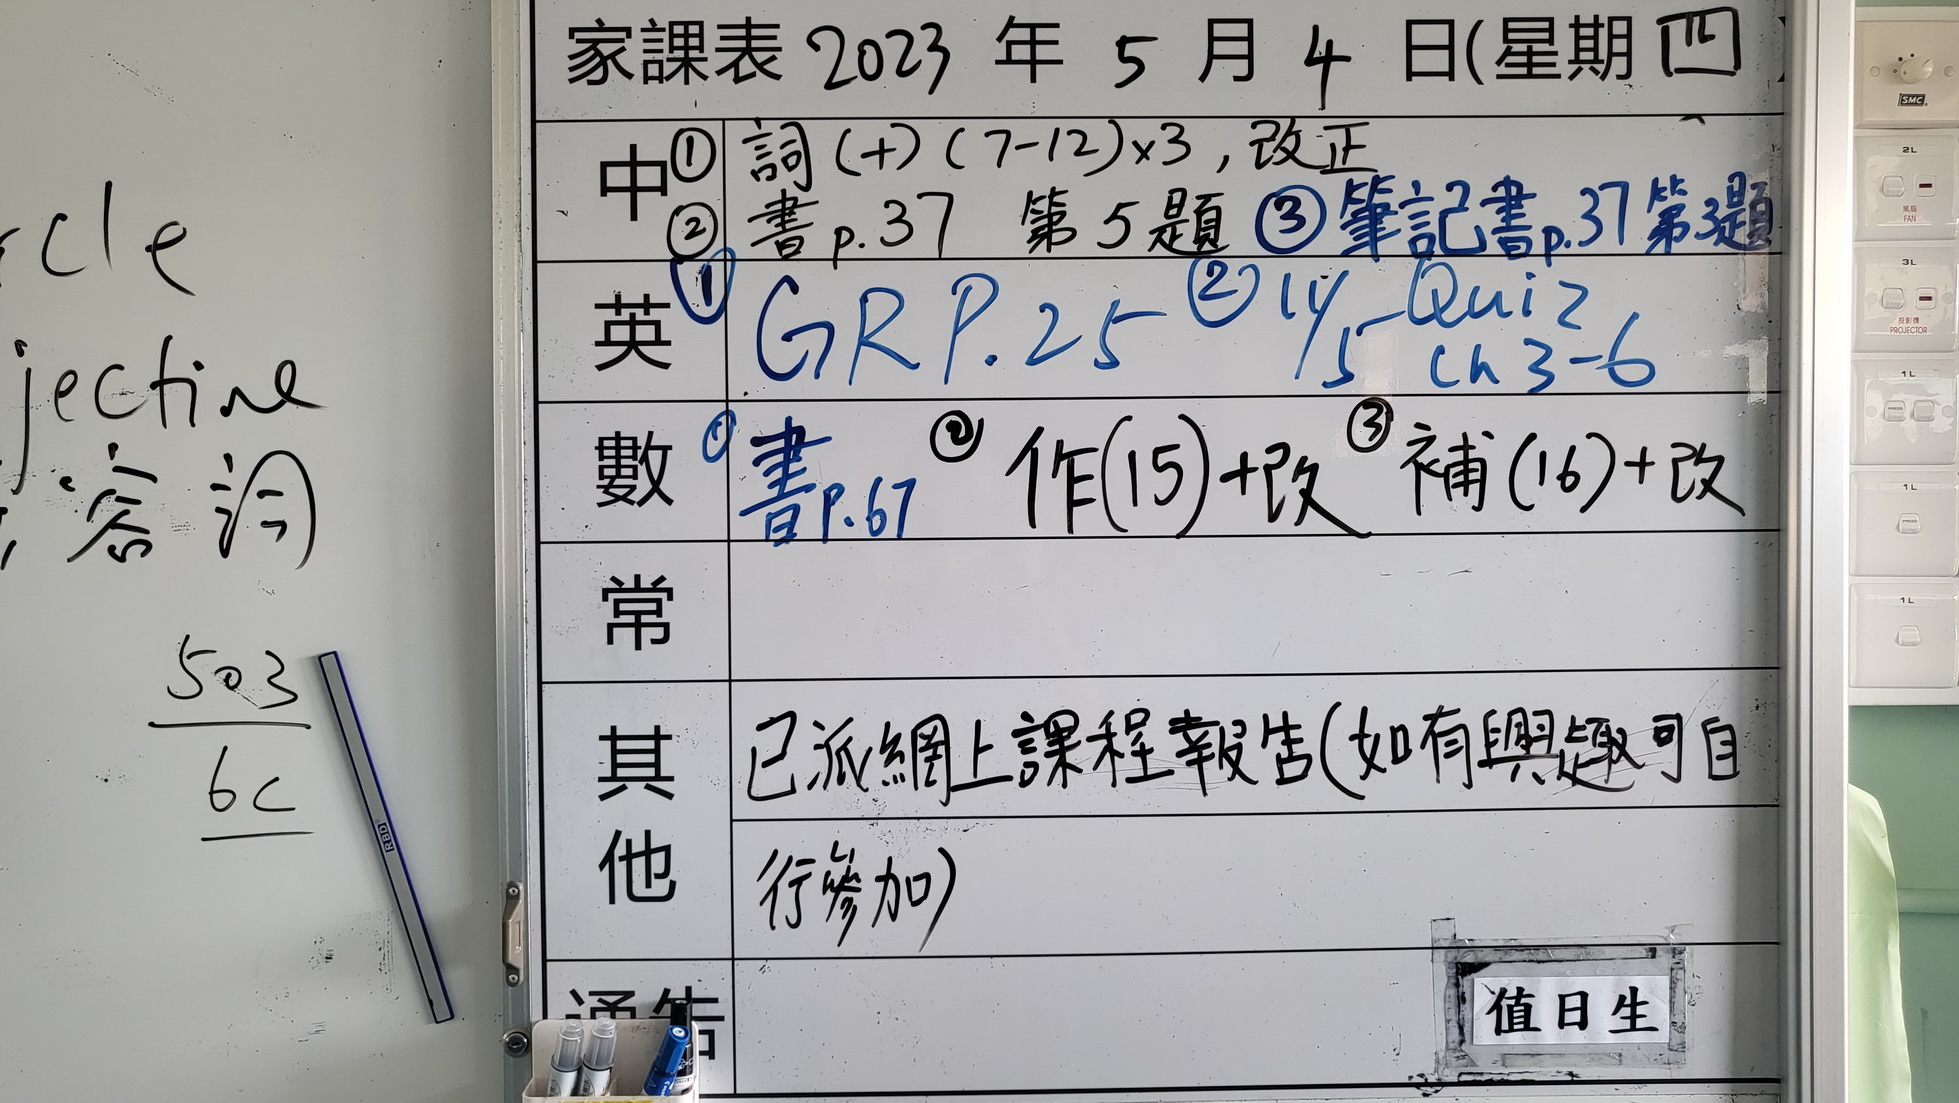 家課表 2023 年 5 月 4 日(星期四)
中 ① 詞(十)(7-12)×3,改正
② 書p.37 第5題 ③筆記書p.37第3題
英 ① GR P.25 ② 11/5 Quiz
Ch 3-6
數 ① 書p.67 ② 作(15)+改 ③ 補(16)+改
常
其他
已派網上課程報告(如有興趣可自
行參加)
通告
值日生
cle
jective
容詞
503
6c
RBD
SMC
2L
風扇
FAN
3L
投影機
PROJECTOR
1L
1L
1L